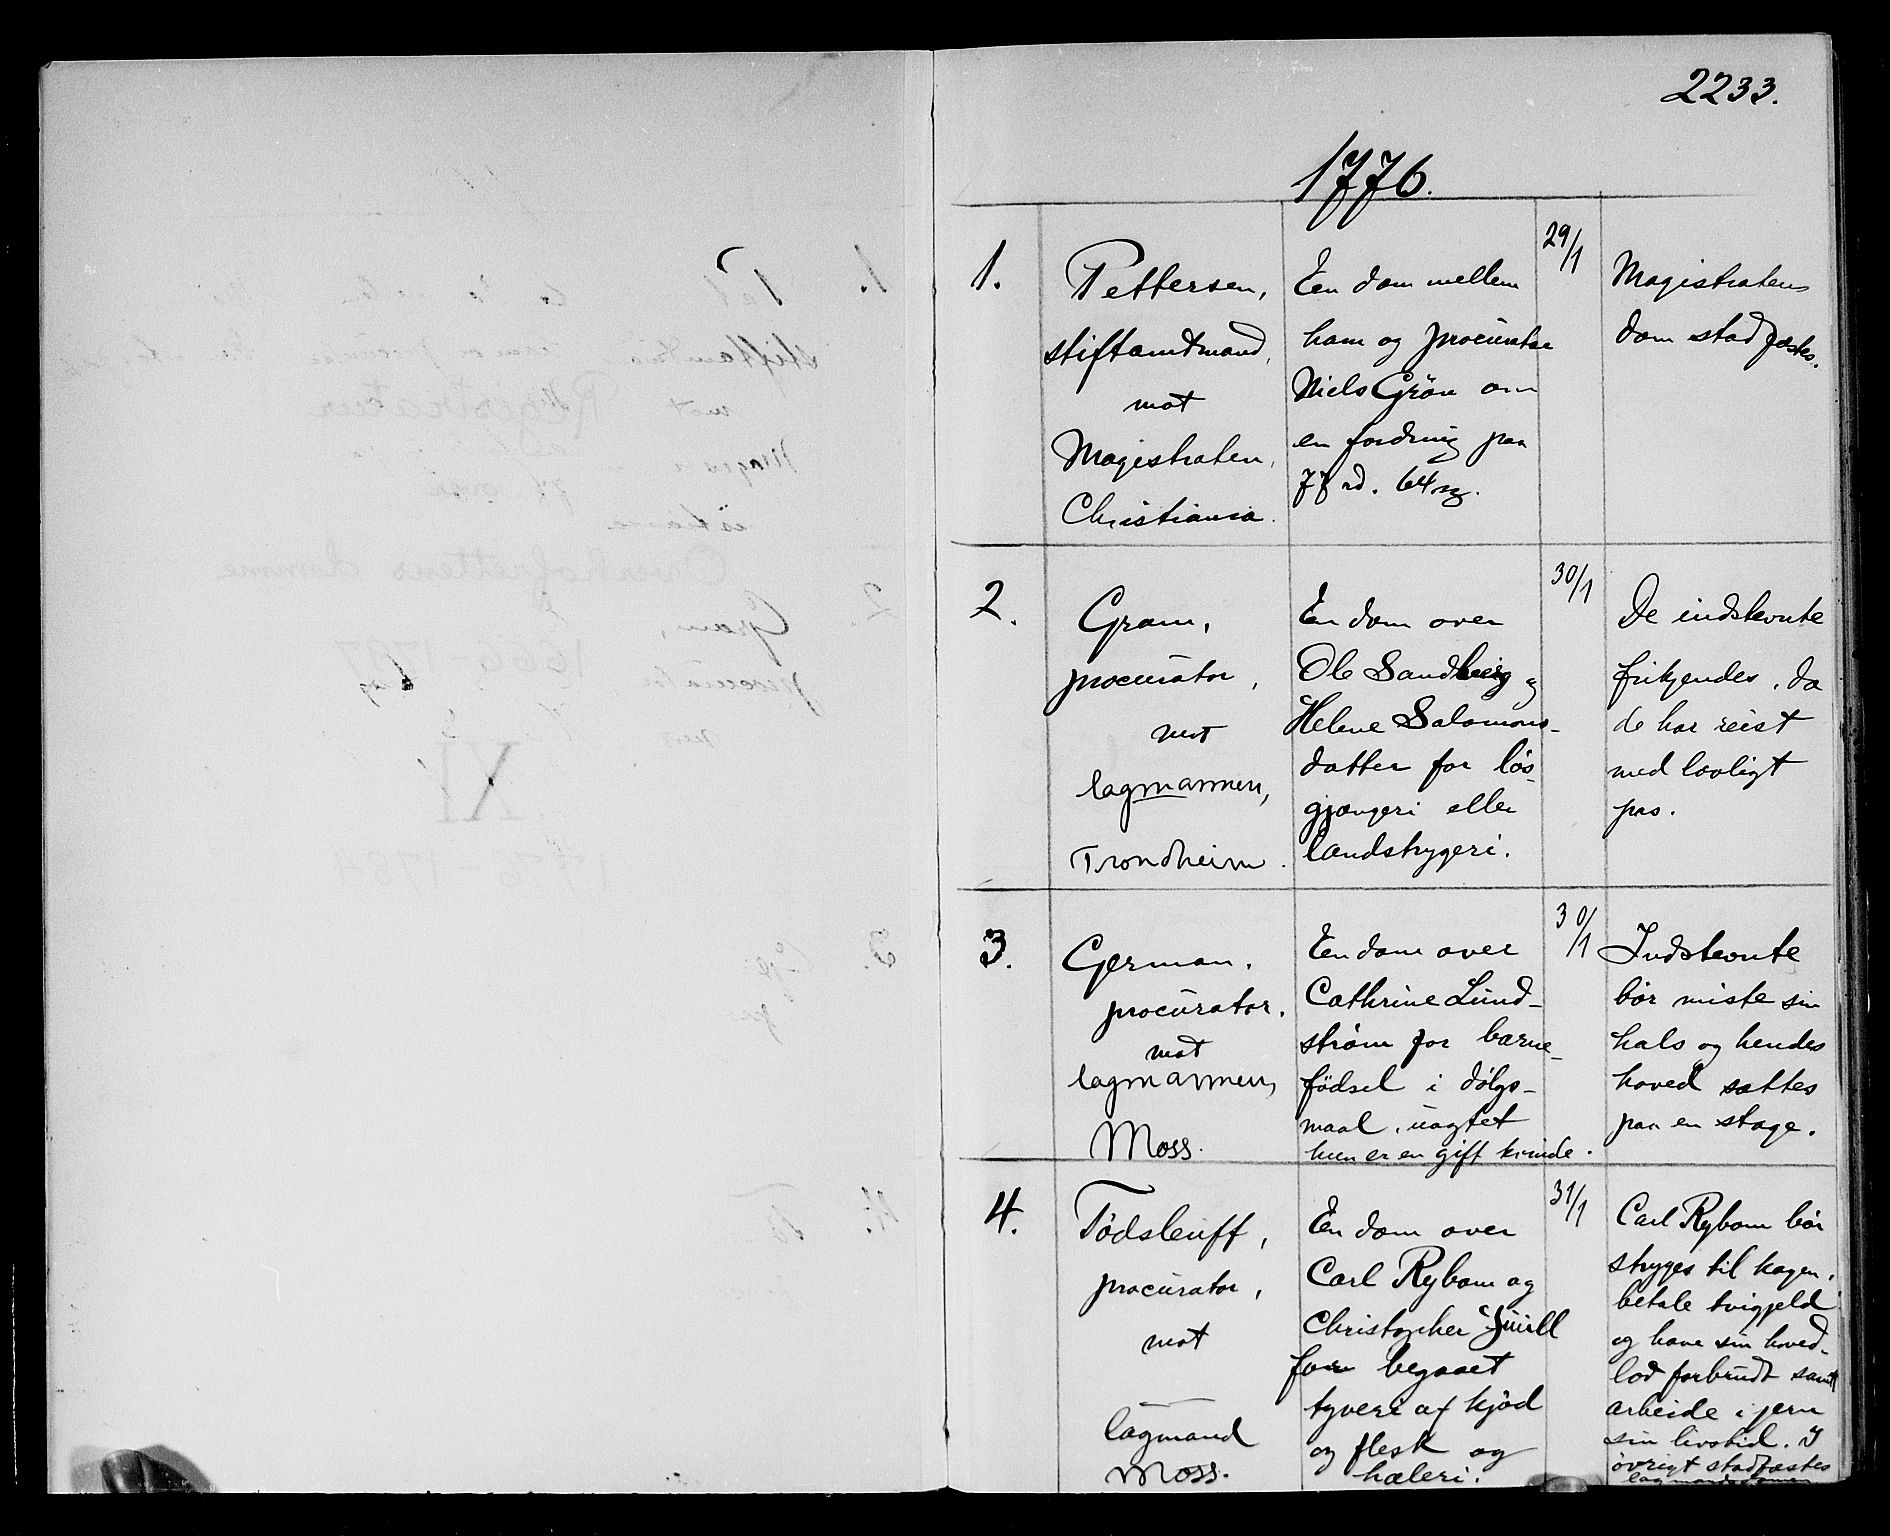 2233.
1776.
1.
Pettersen,
stiftamtmand,
mot
Magistraten,
Christiania.
En dom mellem
ham og procurator
Niels Grön om
en fordring paa
77 rd. 64 sz.
29/1
Magistratens
dom stadfæstes.
2.
Gram,
procurator,
mot
lagmannen,
Trondheim.
En dom over
Ole Sandberg og
Helene Salomons-
datter for lös-
gjængeri eller
landstrygeri.
30/1
De indstevnte
frikjendes, da
de har reist
med lovligt
pas.
3.
German,
procurator.
mot
lagmannen,
Moss.
En dom over
Cathrine Lund-
strøm for barne-
fødsel i dølgs-
maal, uagtet
hun er en gift kvinde.
30/1
Indstevnte
bör miste sin
hals og hendes
hoved sættes
paa en stage.
4.
Tödsleuff,
procurator,
mot
lagmand
Moss.
En dom over
Carl Rybom og
Christopher Juull
for begaaet
tyveri af kjöd
og flesk og
hæleri.
31/1
Carl Rybom bör
stryges til kagen,
betale tvigjeld
og have sin hoved-
lod forbrudt samt
arbeide i jern
sin livstid. I
övrigt stadfæstes
lagmandsdommen